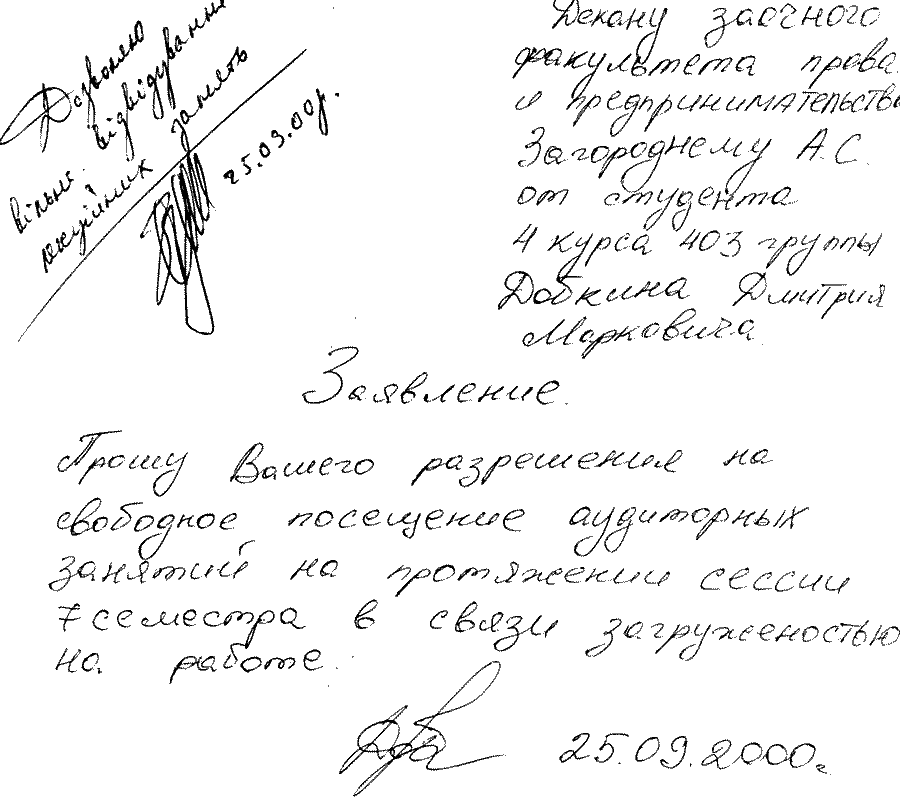 Дозволяю
вільне відвідування
лекційних занять
25.09.00р.
Декану заочного
факультета права
и предпринимательства
Загороднему А.С.
от студента
4 курса 403 группы
Добкина Дмитрия
Марковича
Заявление.
Прошу Вашего разрешения на
свободное посещение аудиторных
занятий на протяжении сессии
7 семестра в связи загруженостью
на работе.
25.09.2000г.